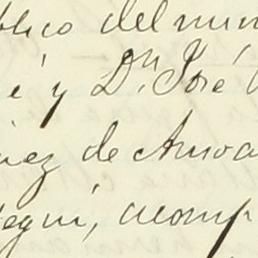 blico del mun
é y Dn. José
ez de Amoa
egui, acomp